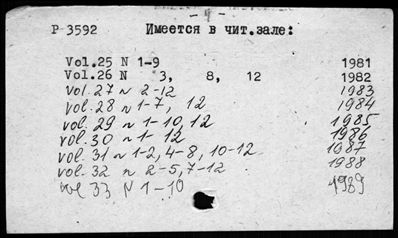 - 4 -
P 3592 Имеется в чит.зале:
Vol.25 N 1-9 1981
Vol.26 N 3, 8, 12 1982
vol.27 N 2-12 1983
vol.28 N 1-7, 12 1984
vol.29 N 1-10, 12 1985
vol.30 N 1-12 1986
vol.31 N 1-2, 4-8, 10-12 1987
vol.32 N 2-5, 7-12 1988
vol 33 N 1-10 1989